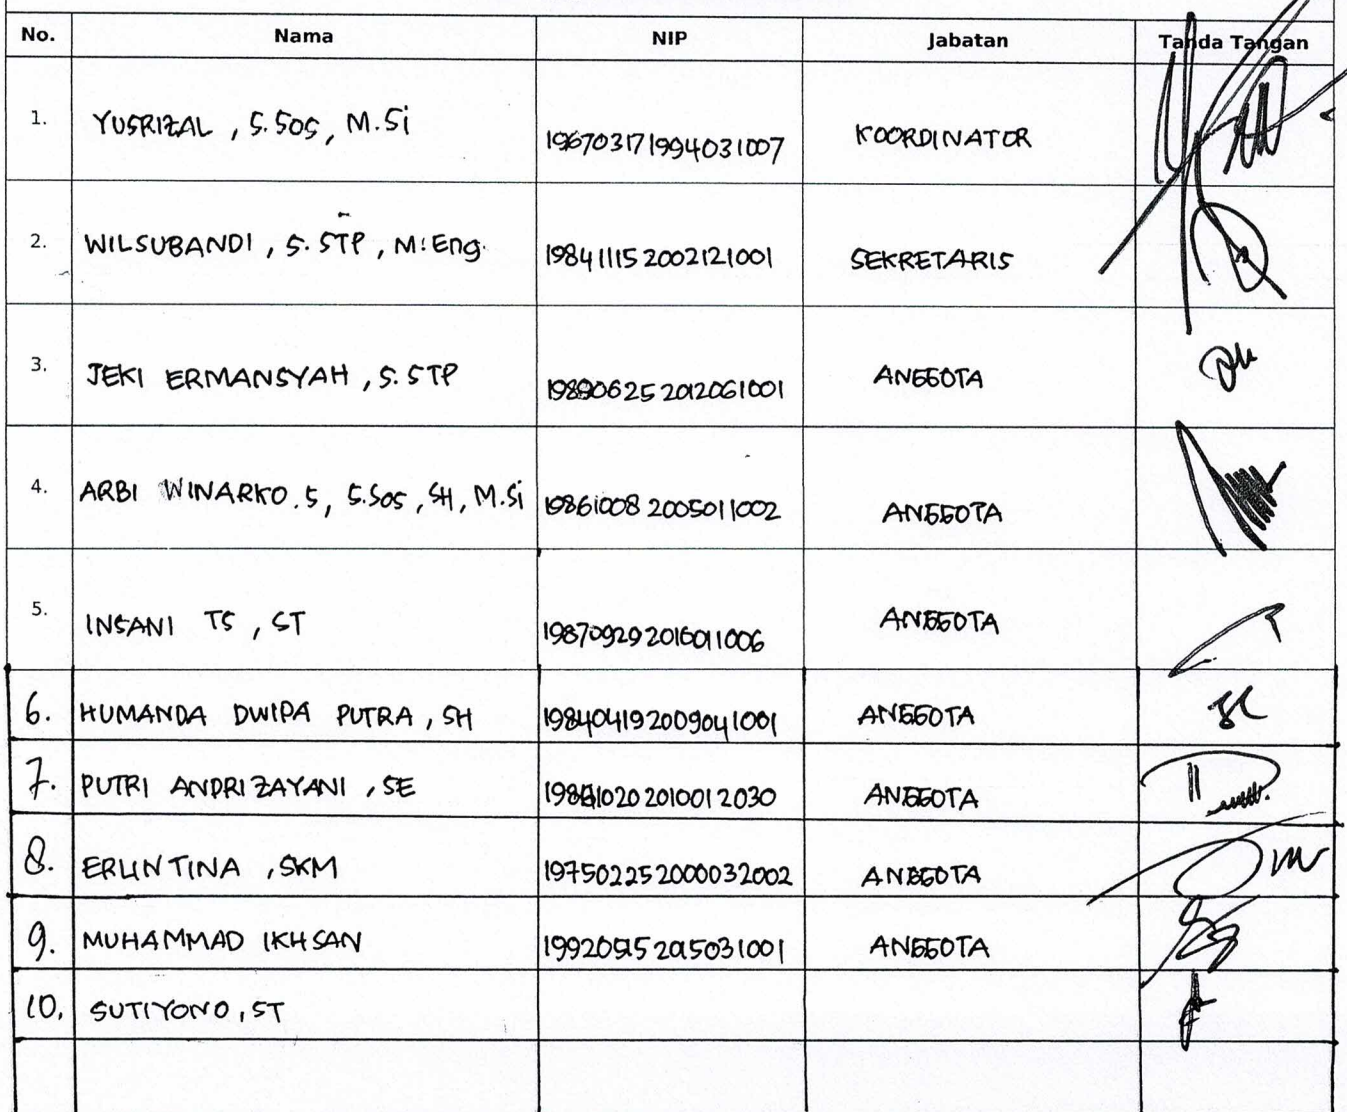 No. Nama NIP Jabatan Tanda Tangan
1. YUSRIZAL, S.SOS, M.Si 196703171994031007 KOORDINATOR
2. WILSUBANDI, S.STP, M.Eng. 198411152002121001 SEKRETARIS
3. JEKI ERMANSYAH, S.STP ANGGOTA
4. ARBI WINARKO.S, S.Sos, SH, M.Si 198610082005011002 ANGGOTA
5. INSANI TS, ST 198709292016011006 ANGGOTA
6. HUMANDA DWIPA PUTRA, SH 198404192009041001 ANGGOTA
7. PUTRI ANDRIZAYANI, SE ANGGOTA
8. ERLINTINA, SKM 197502252000032002 ANGGOTA
9. MUHAMMAD IKHSAN ANGGOTA
10. SUTIYONO, ST